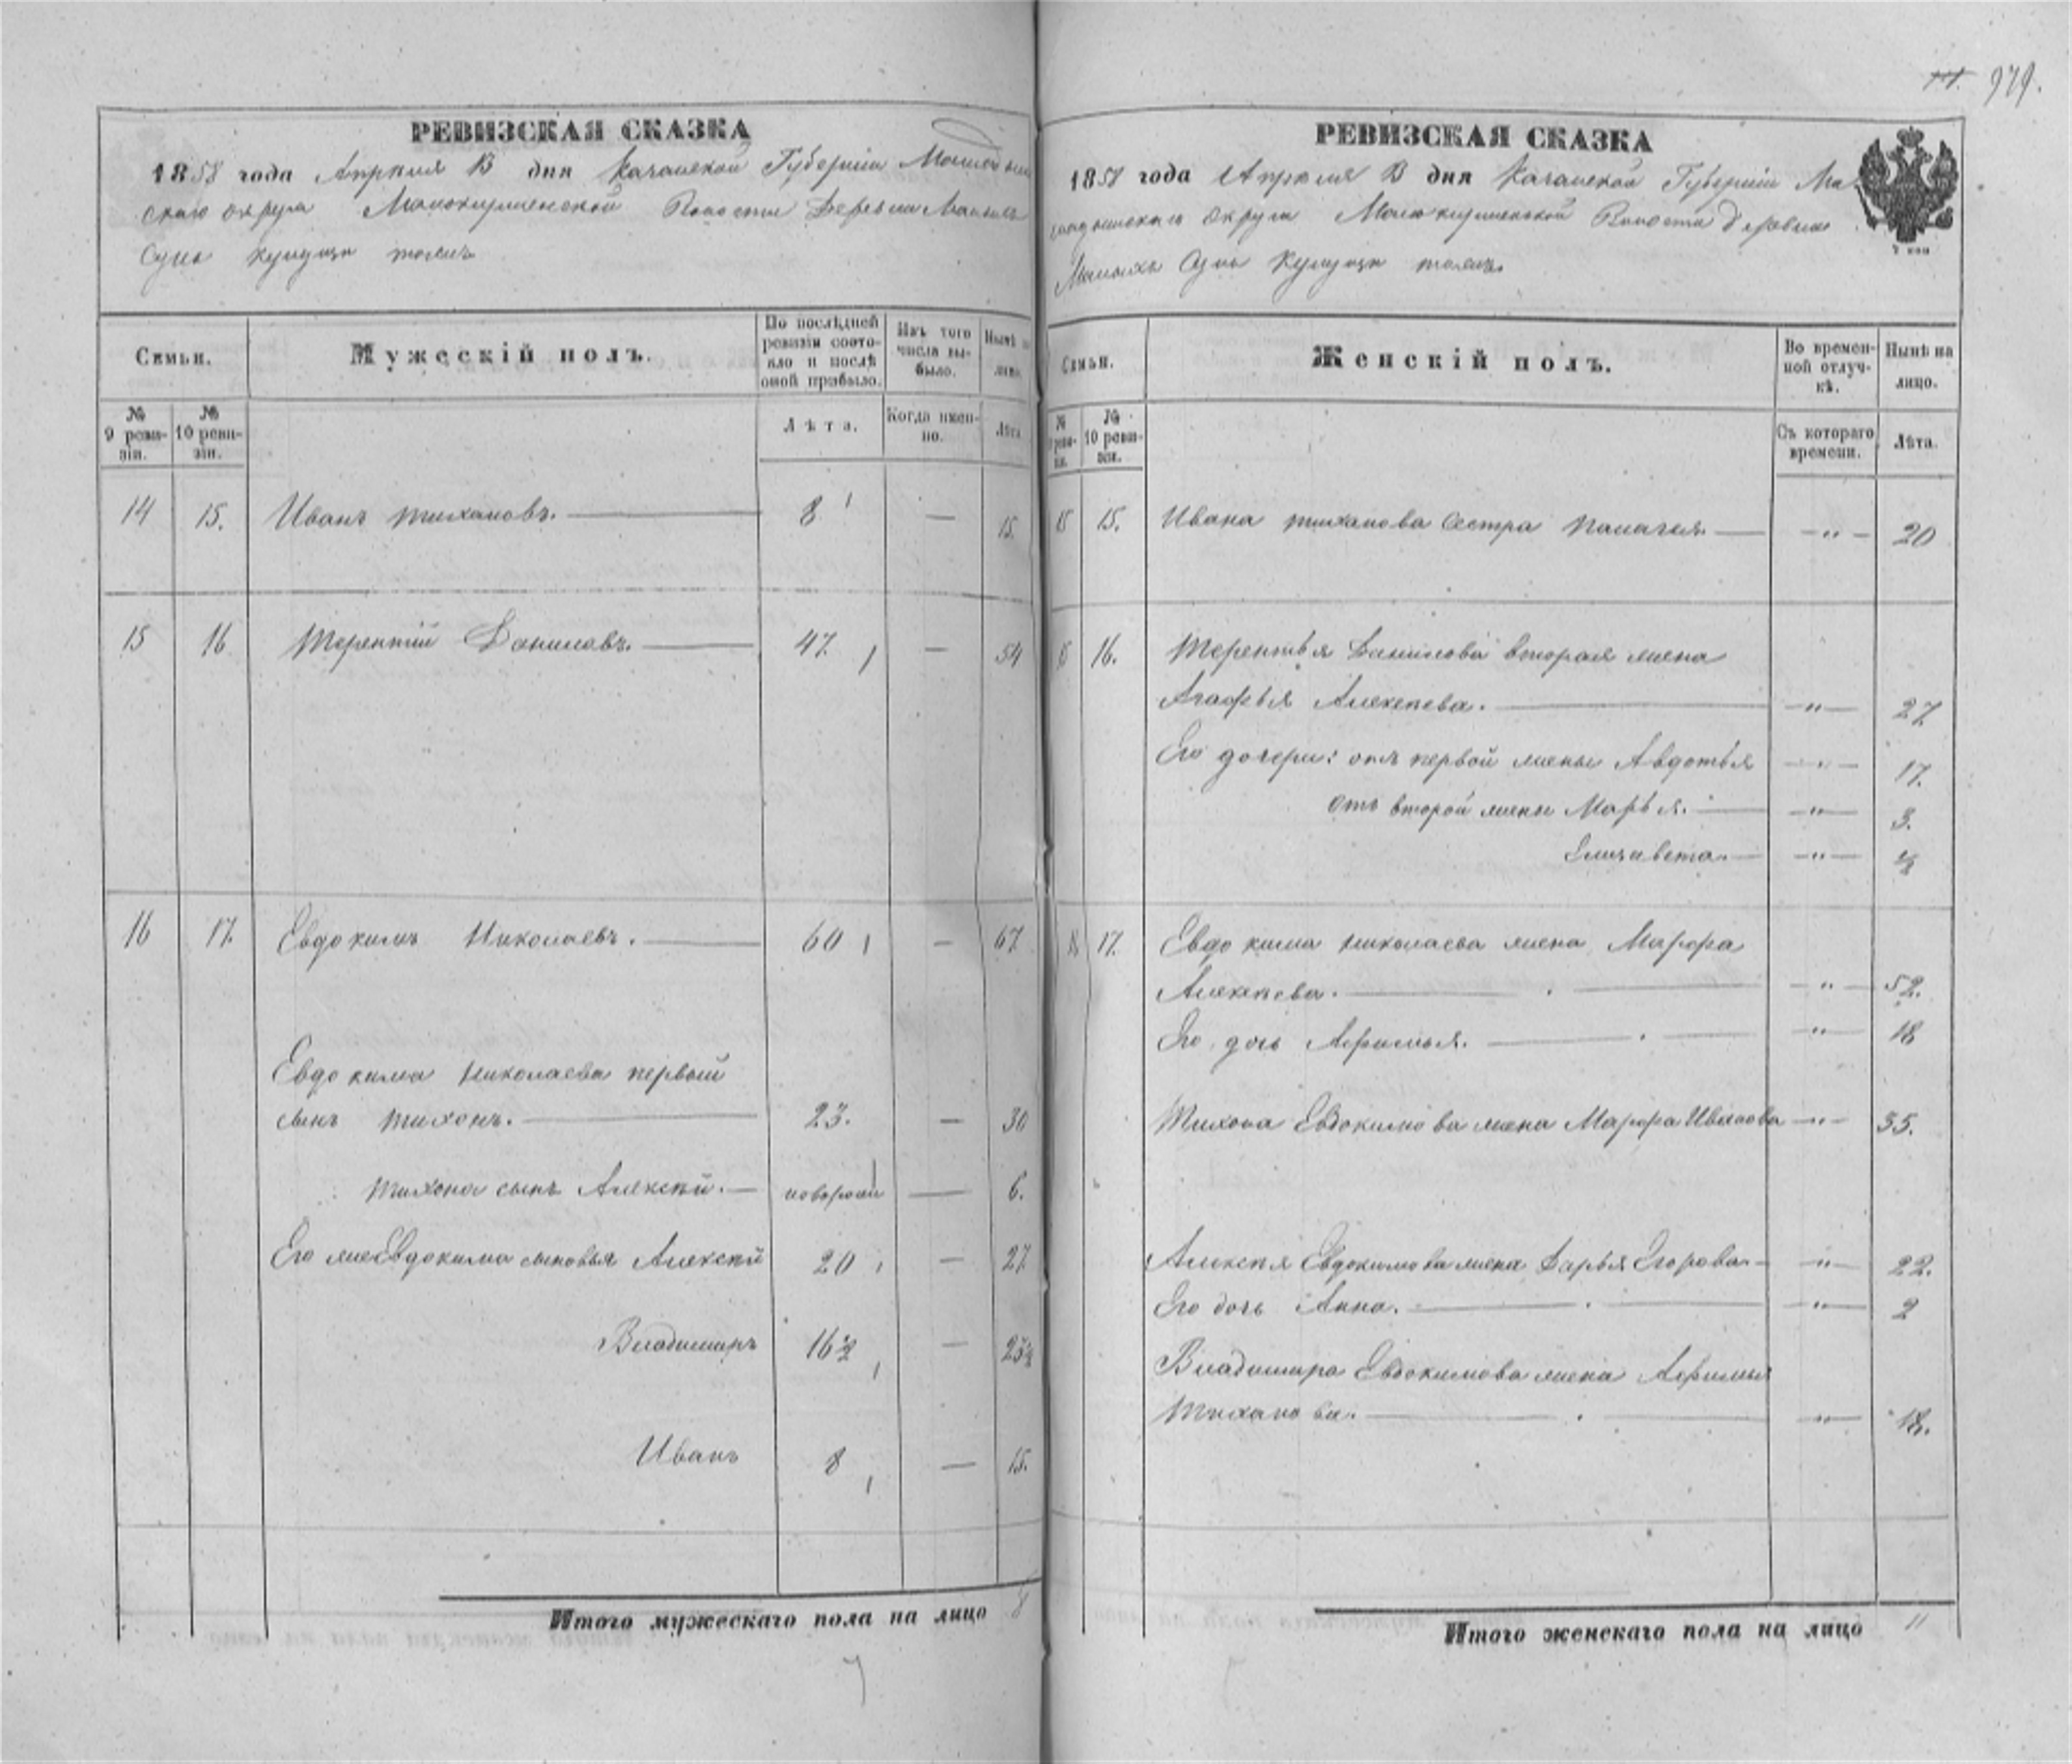 979.
РЕВИЗСКАЯ СКАЗКА
1858 года Апреля В дня Казанской Губернии Мамадыш
скаго округа Малокирменской Волости Деревни Малыхъ
Сунь
РЕВИЗСКАЯ СКАЗКА
1858 года Апреля В дня Казанской Губернии Ма
мадышскаго Округа Малокирменской Волости Деревни
Малыхъ Сунь
7 коп
Семьи.
Мужескій полъ.
По послѣдней ревизіи состояло и послѣ оной прибыло.
Изъ того числа выбыло.
Нынѣ на лицо.
№ 9 ревизіи.
№ 10 ревизіи.
Лѣта.
Когда именно.
Лѣта
14 15. Иванъ Тихановъ. 8 — 15.
15 16 Терентій Даниловъ. 47 — 54
16 17. Евдокимъ Николаевъ. 60 — 67
Евдокима Николаева первый
сынъ Тихонъ. 23. — 30
Тихона сынъ Алексѣй. новорожд — 6.
Его же Евдокима сыновья Алексѣй 20 — 27
Владимиръ 16½ — 23½
Иванъ 8 — 15.
Итого мужескаго пола на лицо 8
Семьи.
Женскій полъ.
Во временной отлучкѣ.
Нынѣ на лицо.
№ 9 ревизіи.
№ 10 ревизіи.
Съ котораго времени.
Лѣта.
15 15. Ивана Тиханова сестра Палагея — " — 20
15 16. Терентья Данилова вторая жена
Агафья Алексѣева. — " — 27
Его дочери: отъ первой жены Авдотья — " — 17.
отъ второй жены Марья. — " — 3.
Елизавета. — " — ½
16 17. Евдокима Николаева жена Марфа
Алексѣева. — " — 52.
Его дочь Афимья. — " — 18
Тихона Евдокимова жена Марфа Иванова — " — 35.
Алексѣя Евдокимова жена Дарья Егорова — " — 22.
Его дочь Анна. — " — 2
Владимира Евдокимова жена Афимья
Тиханова. — " — 18.
Итого женскаго пола на лицо 11